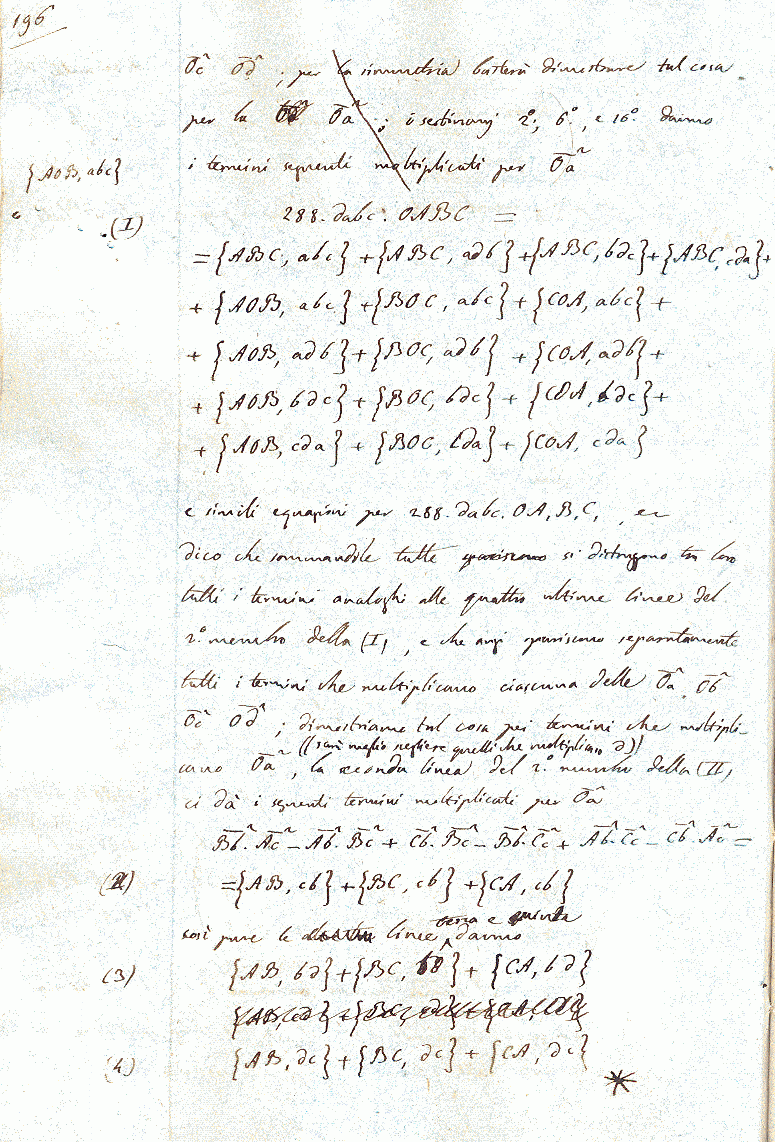 196
O̅c̅² O̅d̅² ; per la simmetria basterà dimostrare tal cosa
per la O̅a̅² ; i settinomj 2º, 6º, e 16º danno
i termini seguenti moltiplicati per O̅a̅²
{AOB, abc}
(I) 288. dabc. OABC =
= {ABC, abc} + {ABC, adb} + {ABC, bdc} + {ABC, cda} +
+ {AOB, abc} + {BOC, abc} + {COA, abc} +
+ {AOB, adb} + {BOC, adb} + {COA, adb} +
+ {AOB, bdc} + {BOC, bdc} + {COA, bdc} +
+ {AOB, cda} + {BOC, cda} + {COA, cda}
e simili equazioni per 288. dabc. OA,B,C, , ec
dico che sommandole tutte spariscono si distruggono tra loro
tutti i termini analoghi alle quattro ultime linee del
2º membro della (I) , e che anzi spariscono separatamente
tutti i termini che moltiplicano ciascuna delle O̅a̅² O̅b̅²
O̅c̅² O̅d̅² ; dimostriamo tal cosa pei termini che moltipli-
((sarà meglio scegliere quelli che moltiplicano d))
cano O̅a̅² , la seconda linea del 2º membro della (I)
ci dà i seguenti termini moltiplicati per O̅a̅²
B̅b̅². A̅c̅² – A̅b̅². B̅c̅² + C̅b̅². B̅c̅² – B̅b̅². C̅c̅² + A̅b̅². C̅c̅² – C̅b̅². A̅c̅² =
(2) = {AB, cb} + {BC, cb} + {CA, cb}
così pure le linee terza e quinta danno
(3) {AB, bd} + {BC, bd} + {CA, bd}
{AB, cd} + {BC, cd} + {CA, cd}
(4) {AB, dc} + {BC, dc} + {CA, dc}
*